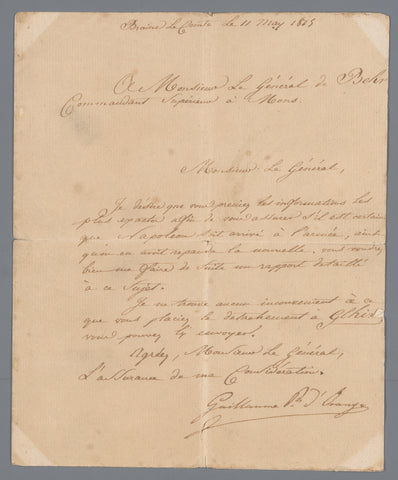 Braine Le Comte le 11 May 1815
A Monsieur Le Général de Behr
Commandant Supérieur à Mons.
Monsieur Le Général,
Je desire que vous preniez les informations les
plus exactes afin de vous assurer s'il est certain
que Napoleon soit arrivé à l'armée, ainsi
qu'on en avoit repandu la nouvelle, vous voudrez
bien me faire de suite un rapport detaillé
à ce sujet.
Je ne trouve aucun inconvenient à ce
que vous placiez le detachement à Ghlin,
vous pouvez l'y envoyer.
Agréez, Monsieur Le Général,
L'assurance de ma Consideration.
Guillaume Pce d'Orange